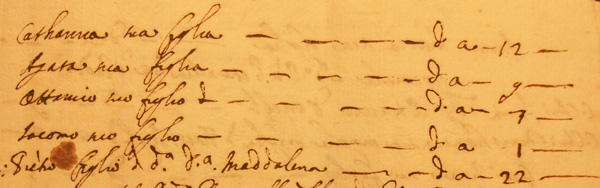 Catharina sua figlia — — — — — d'a - 12 —
Agata sua figlia — — — — — d'a - 9 —
Ottavio suo figlio — — — — d'a - 7 —
Iacomo suo figlio — — — — d'a 1 —
figlio d. d.ª S.ª Maddalena — — d'a - 22 —